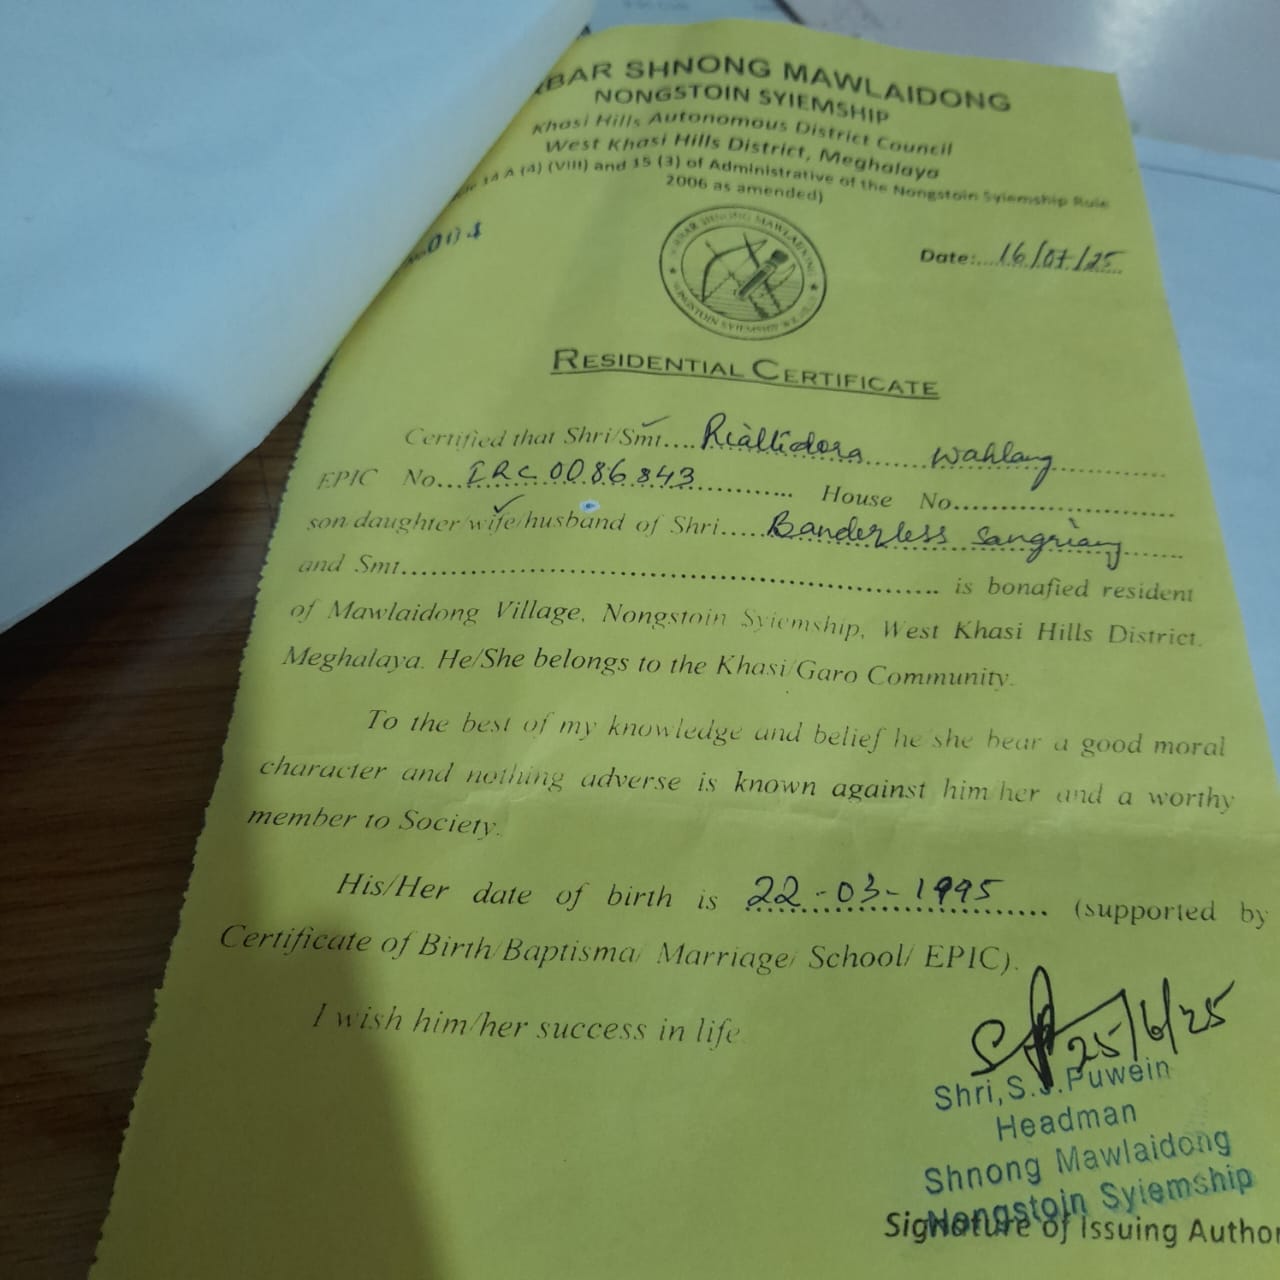 BAR SHNONG MAWLAIDONG
NONGSTOIN SYIEMSHIP
Khasi Hills Autonomous District Council
West Khasi Hills District, Meghalaya
14 A (4) (VIII) and 15 (3) of Administrative of the Nongstoin Syiemship Rule
2006 as amended)
Date:....16/07/25
RBAR SHNONG MAWLAIDONG
NONGSTOIN SYIEMSHIP
RESIDENTIAL CERTIFICATE
Certified that Shri/Smt.... Riallidora Wahlang
EPIC No... IRC0086843 House No.
son/daughter/wife/husband of Shri..... Banderless Sangriang
and Smt. is bonafied resident
of Mawlaidong Village, Nongstoin Syiemship, West Khasi Hills District,
Meghalaya. He/She belongs to the Khasi/Garo Community.
To the best of my knowledge and belief he/she bear a good moral
character and nothing adverse is known against him/her and a worthy
member to Society.
His/Her date of birth is 22-03-1995 (supported by
Certificate of Birth/Baptisma/ Marriage/ School/ EPIC).
I wish him/her success in life
25/6/25
Shri,S.J.Puwein
Headman
Shnong Mawlaidong
Nongstoin Syiemship
Signature of Issuing Author